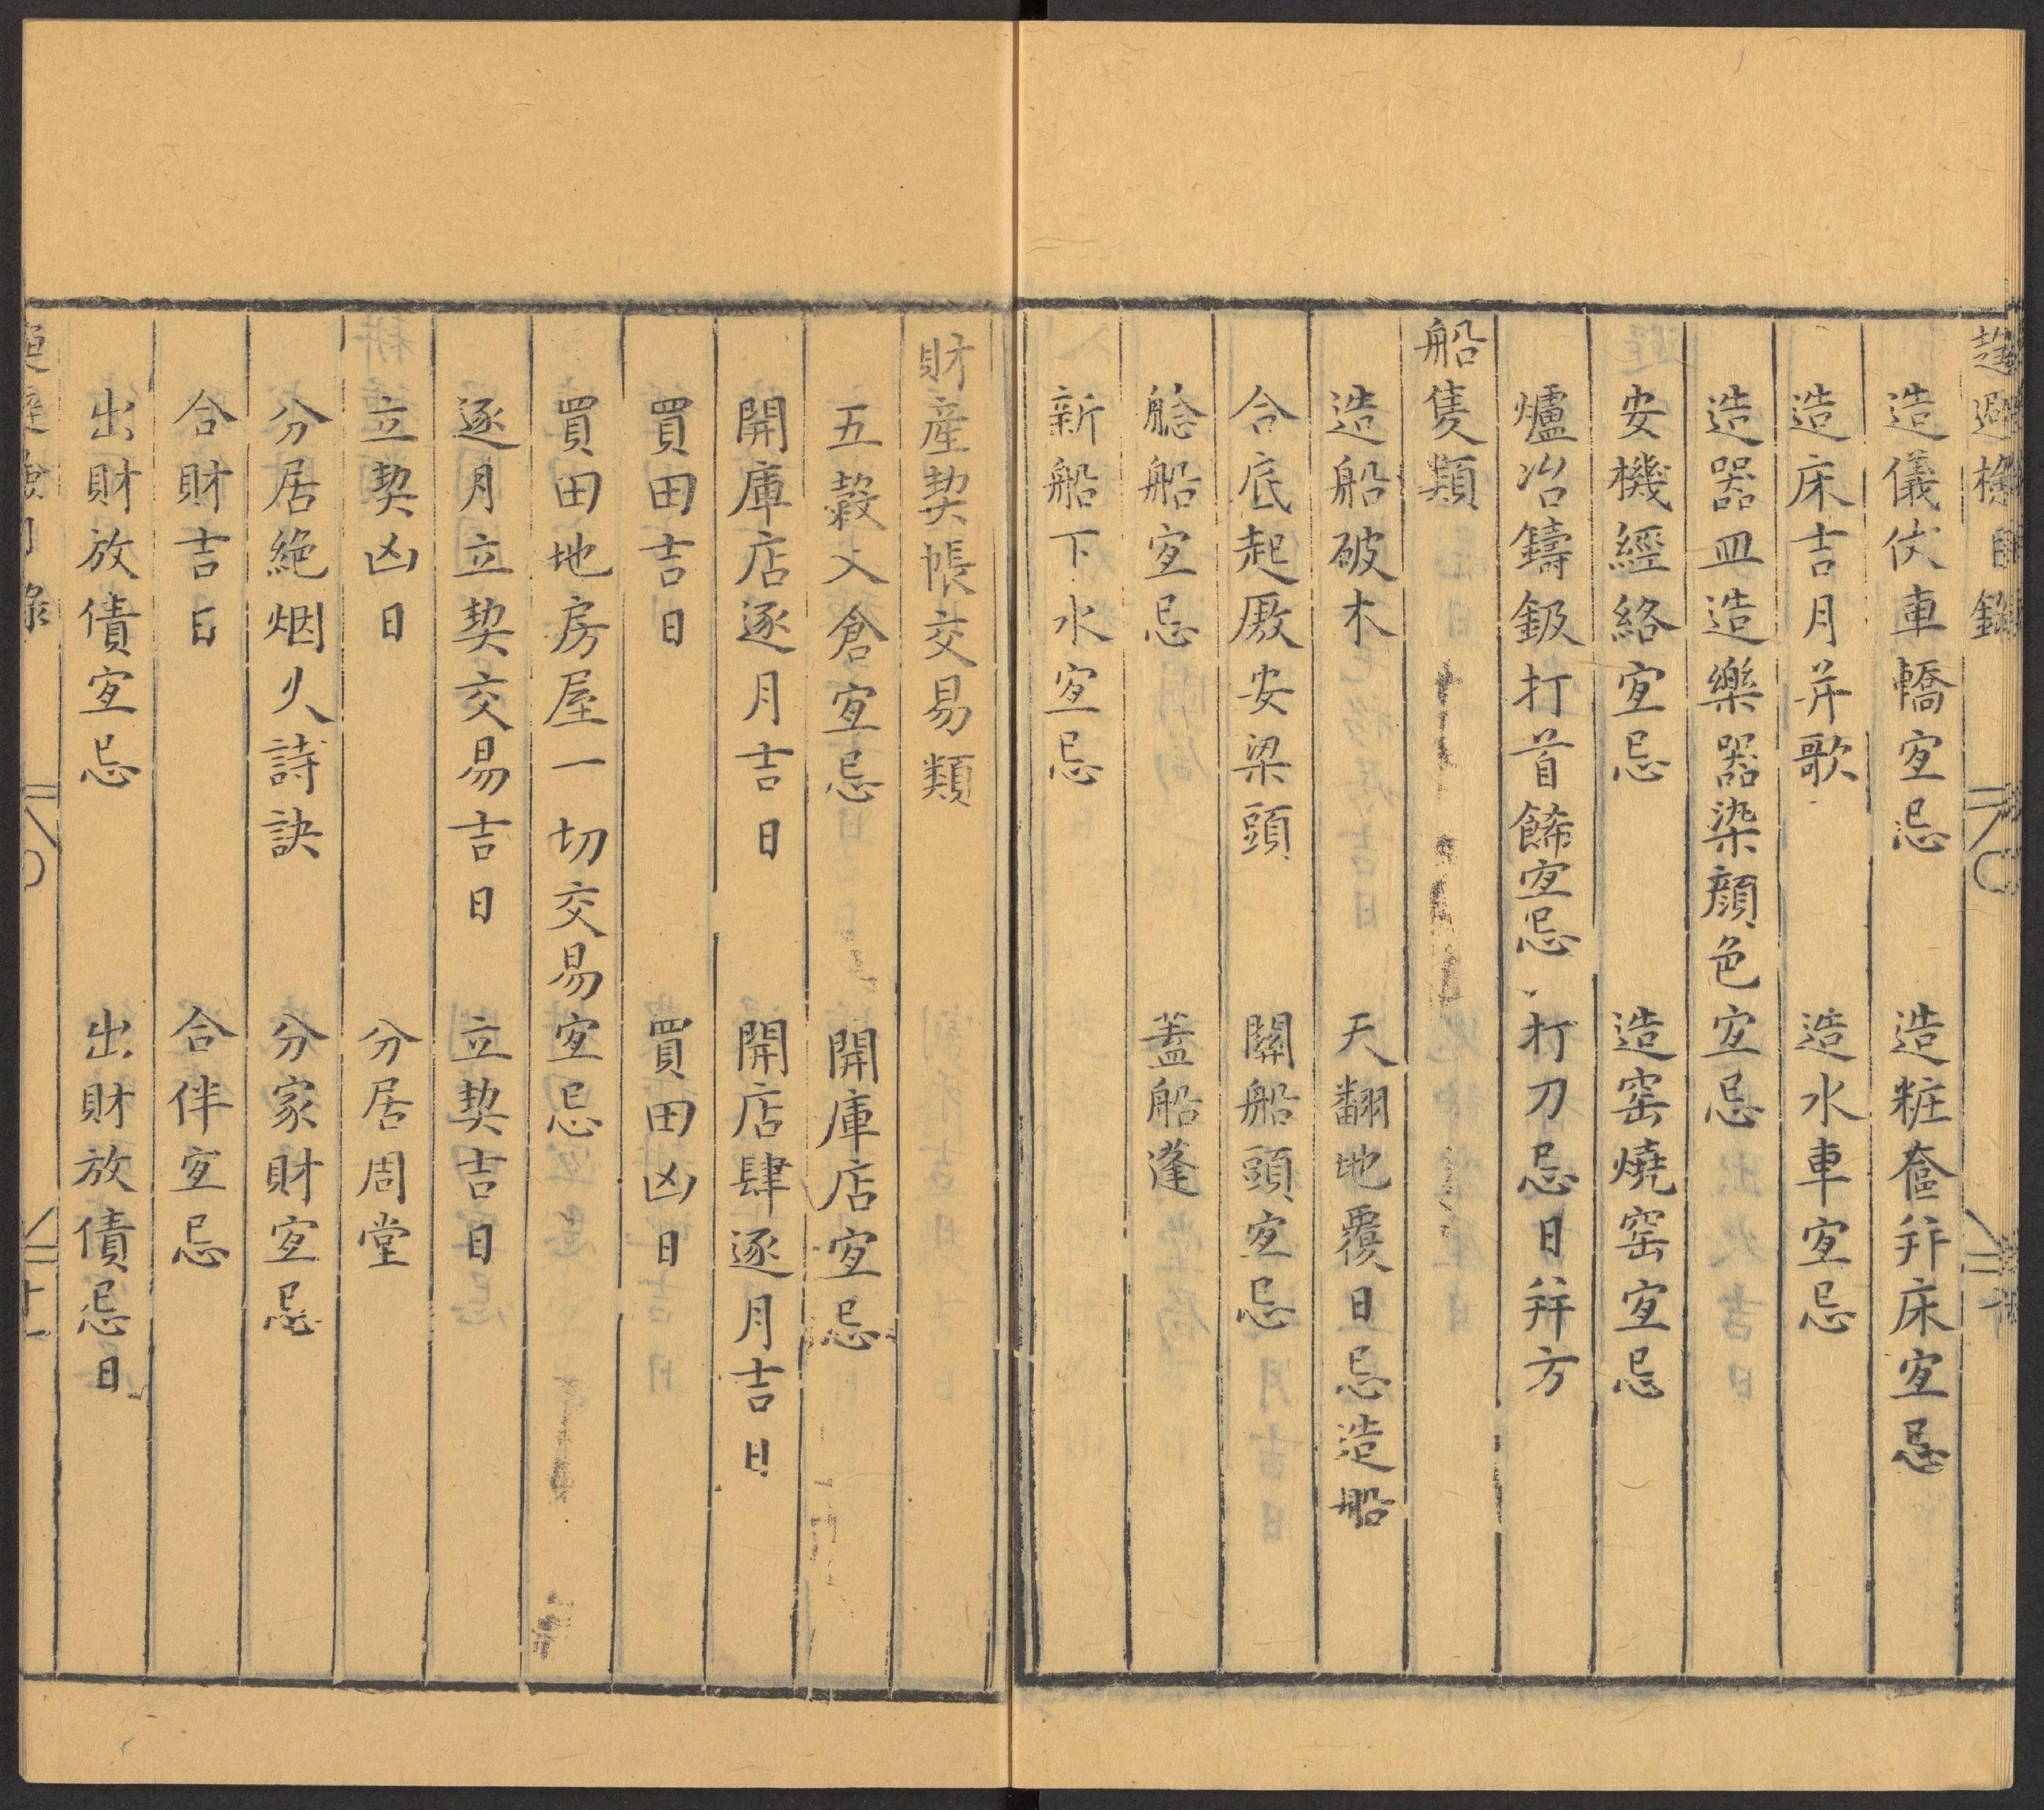 趨避檢目錄
造儀仗車轎宜忌　造粧奩并床宜忌
造床吉月并歌　造水車宜忌
造器皿造樂器染顏色宜忌
安機經絡宜忌　造窑燒窑宜忌
爐冶鑄鈒打首餙宜忌　打刀忌日并方
船隻類
造船破木　天翻地覆日忌造船
合底起厫安梁頭　關船頭宜忌
艌船宜忌　蓋船蓬
新船下水宜忌
財產契帳交易類
五穀入倉宜忌　開庫店宜忌
開庫店逐月吉日　開店肆逐月吉日
買田吉日　買田凶日
買田地房屋一切交易宜忌
逐月立契交易吉日　立契吉日
立契凶日　分居周堂
分居絶烟火詩訣　分家財宜忌
合財吉日　合伴宜忌
出財放債宜忌　出財放債忌日